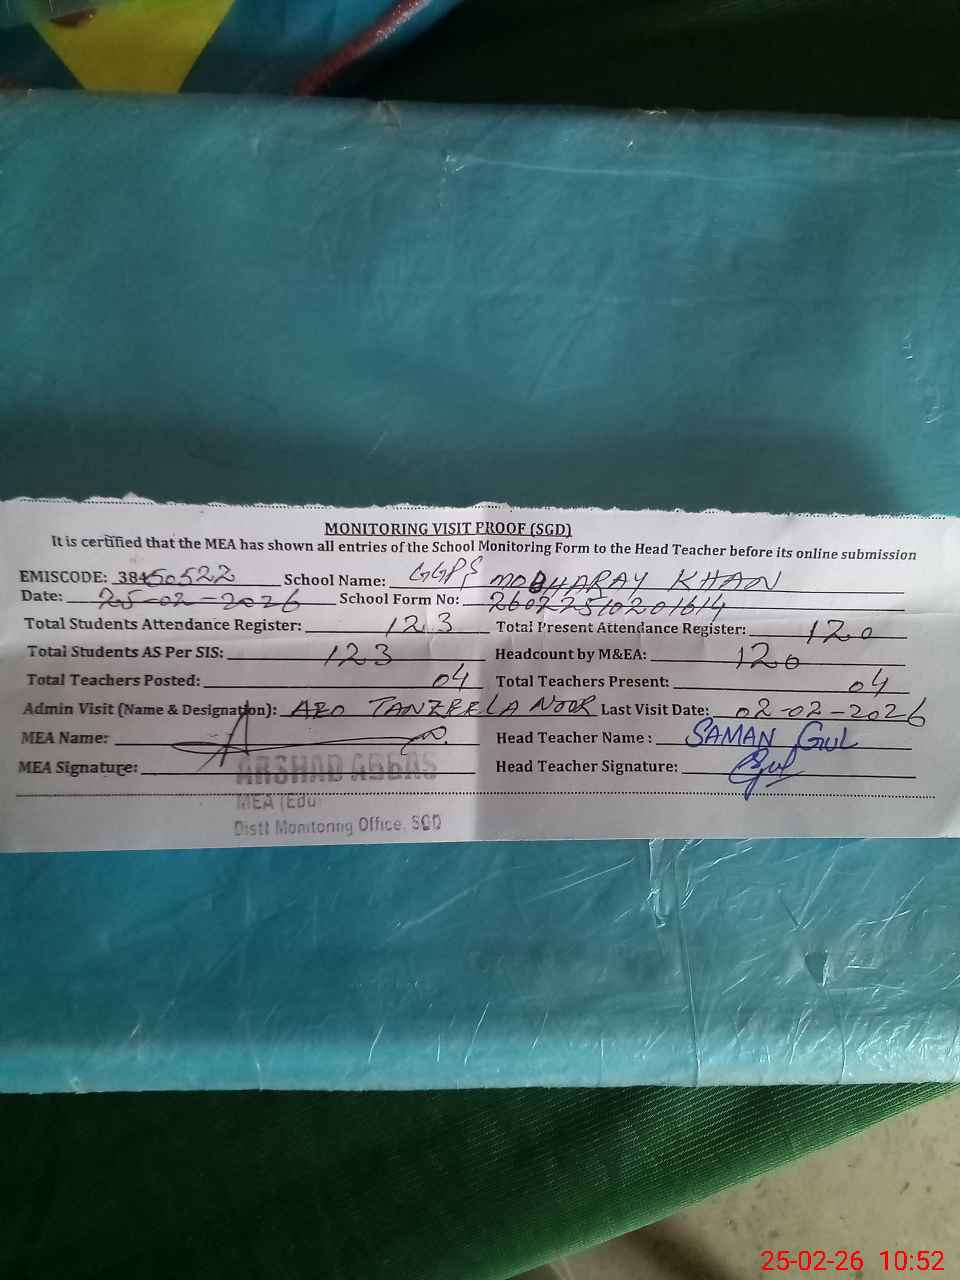 MONITORING VISIT PROOF (SGD)
It is certified that the MEA has shown all entries of the School Monitoring Form to the Head Teacher before its online submission
EMISCODE: 38450522 School Name: GGPS MOBHARAY KHAN
Date: 25-02-2026 School Form No:
Total Students Attendance Register: 123 Total Present Attendance Register: 120
Total Students AS Per SIS: 123 Headcount by M&EA: 120
Total Teachers Posted: 04 Total Teachers Present: 04
Admin Visit (Name & Designation): AEO TANZEELA NOOR Last Visit Date: 02-02-2026
MEA Name: Head Teacher Name : SAMAN GUL
MEA Signature: Head Teacher Signature: Gul
ARSHAD ABBAS
MEA (Edu)
Distt Monitoring Office, SGD
25-02-26 10:52